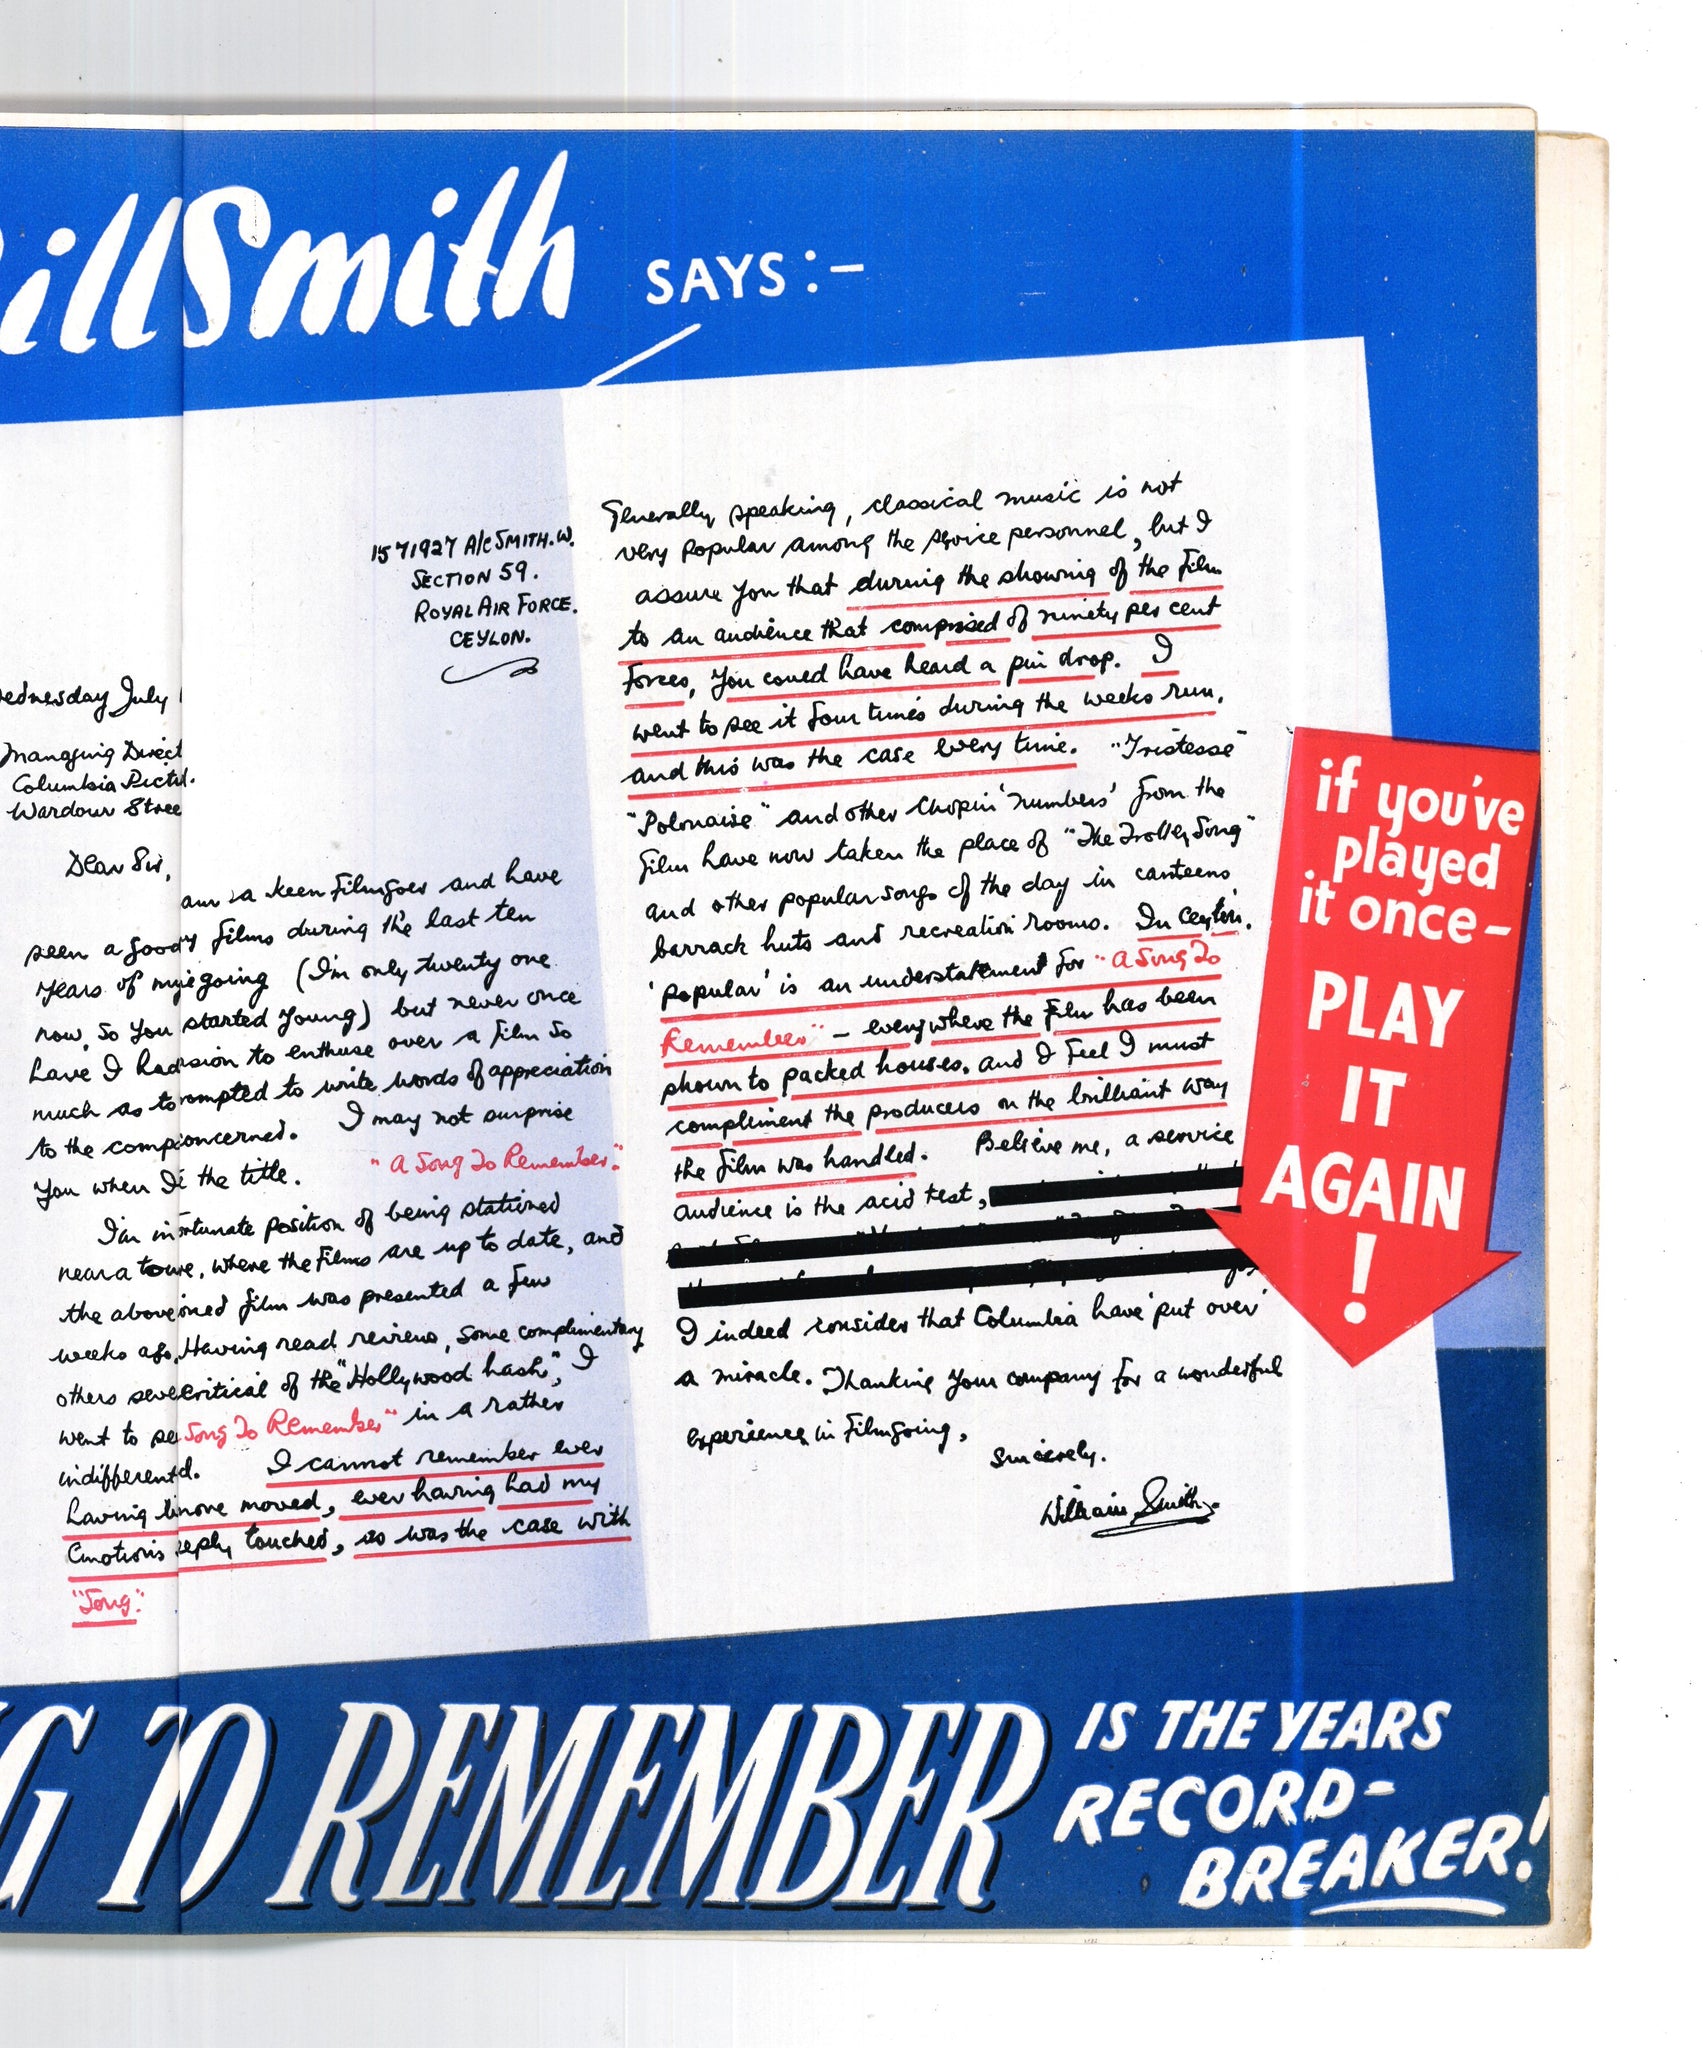 illSmith SAYS:–
1571927 A/C SMITH. W.
SECTION 59.
ROYAL AIR FORCE.
CEYLON.
ednesday July
Managing Direct
Columbia Pict
Wardour Stree
Dear Sir,
am a keen filmgoer and have
seen a good films during the last ten
years of my going (I'm only twenty one
now, so you started young) but never once
have I had sion to enthuse over a film so
much as to rompted to write words of appreciation
to the comp oncerned. I may not surprise
you when I the title. "A Song To Remember."
I'm in ortunate position of being stationed
near a to , where the films are up to date, and
the above oned film was presented a few
weeks ago. Having read reviews, some complimentary
others seve critical of the "Hollywood hash", I
went to se Song To Remember" in a rather
indifferent d. I cannot remember ever
having b more moved, ever having had my
emotions eeply touched, as was the case with
"Song."
Generally speaking, classical music is not
very popular among the service personnel, but I
assure you that during the showing of the film
to an audience that comprised of ninety per cent
Forces, you could have heard a pin drop. I
went to see it four times during the weeks run,
and this was the case every time. "Tristesse"
"Polonaise" and other Chopin 'numbers' from the
film have now taken the place of "The Trolley Song"
and other popular songs of the day in canteens
barrack huts and recreation rooms. In Ceylon.
'popular' is an understatement for "A Song To
Remember" – everywhere the film has been
shown to packed houses. and I feel I must
compliment the producers on the brilliant way
the film was handled. Believe me, a service
audience is the acid test,
I indeed consider that Columbia have 'put over'
a miracle. Thanking your company for a wonderful
experience in filmgoing,
Sincerely.
William Smith.
if you've
played
it once–
PLAY
IT
AGAIN
!
G TO REMEMBER IS THE YEARS
RECORD-
BREAKER!